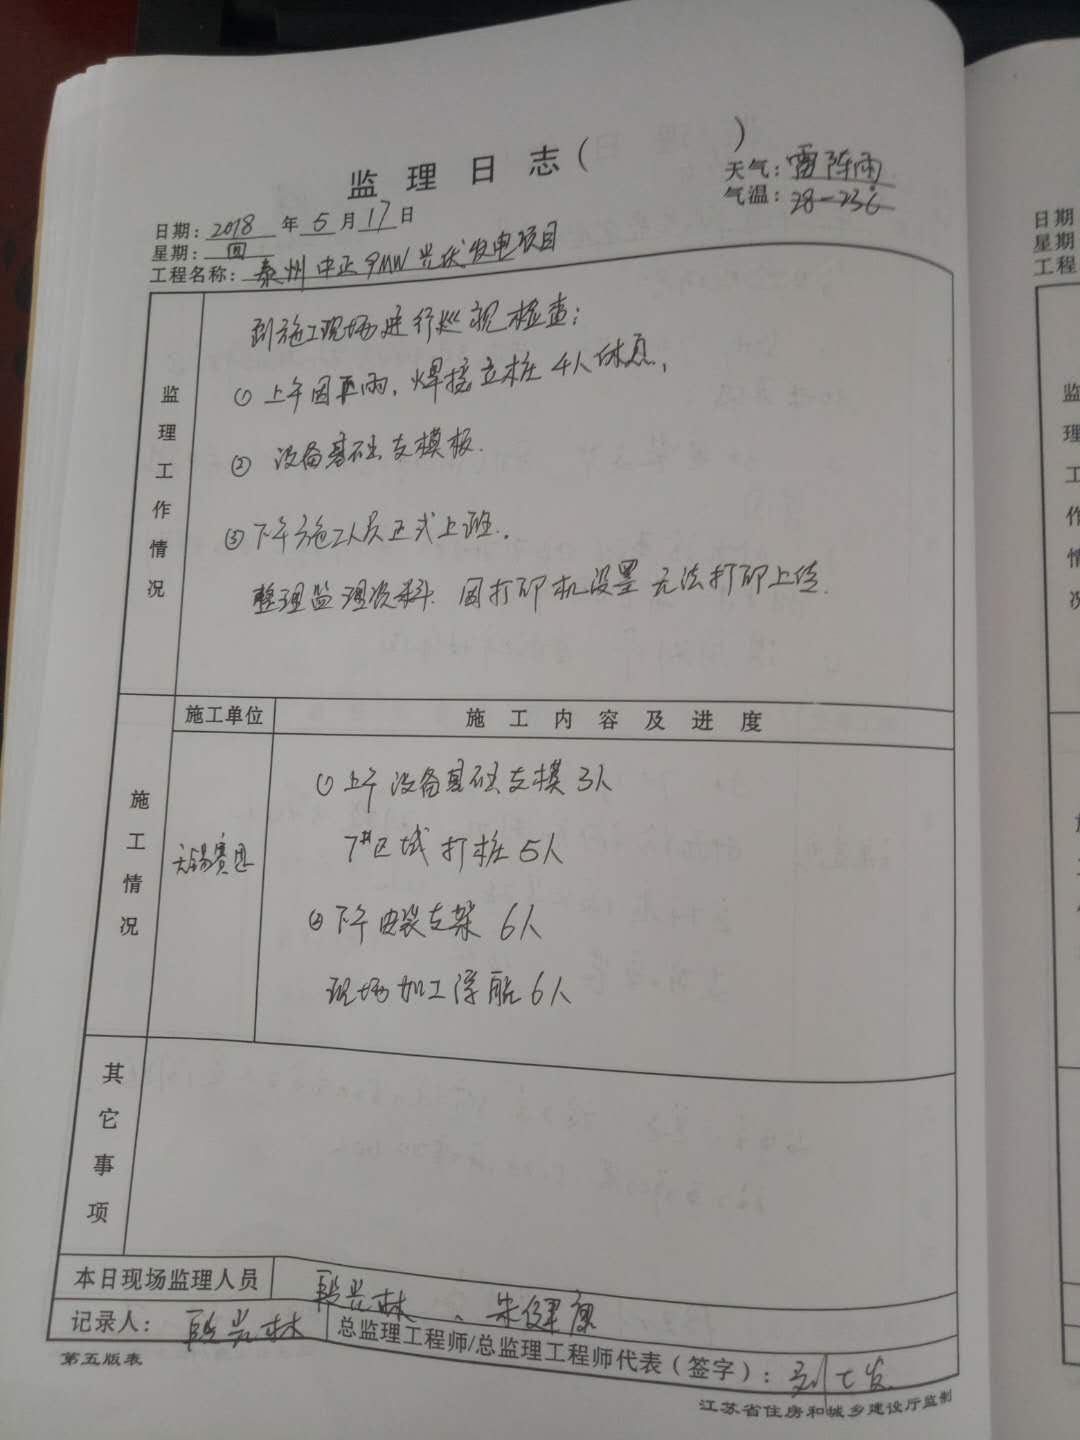 监理日志(　　)
天气：雷阵雨
气温：28-23℃
日期：2018年5月17日
星期：四
工程名称：泰州中正9MW光伏发电项目
监理工作情况
到施工现场进行巡视检查：
① 上午因下雨，焊接立桩4人休息，
② 设备基础支模板.
③ 下午施工人员正式上班.
整理监理资料. 因打印机设置无法打印上传.
施工情况
施工单位
施工内容及进度
无锡赛
① 上午设备基础支模3人
7#区域打桩5人
② 下午安装支架6人
现场加工浮船6人
其它事项
本日现场监理人员
段兴林、朱健康
记录人：段兴林
总监理工程师/总监理工程师代表（签字）：刘
第五版表
江苏省住房和城乡建设厅监制
日期
星期
工程
监
理
工
作
情
况